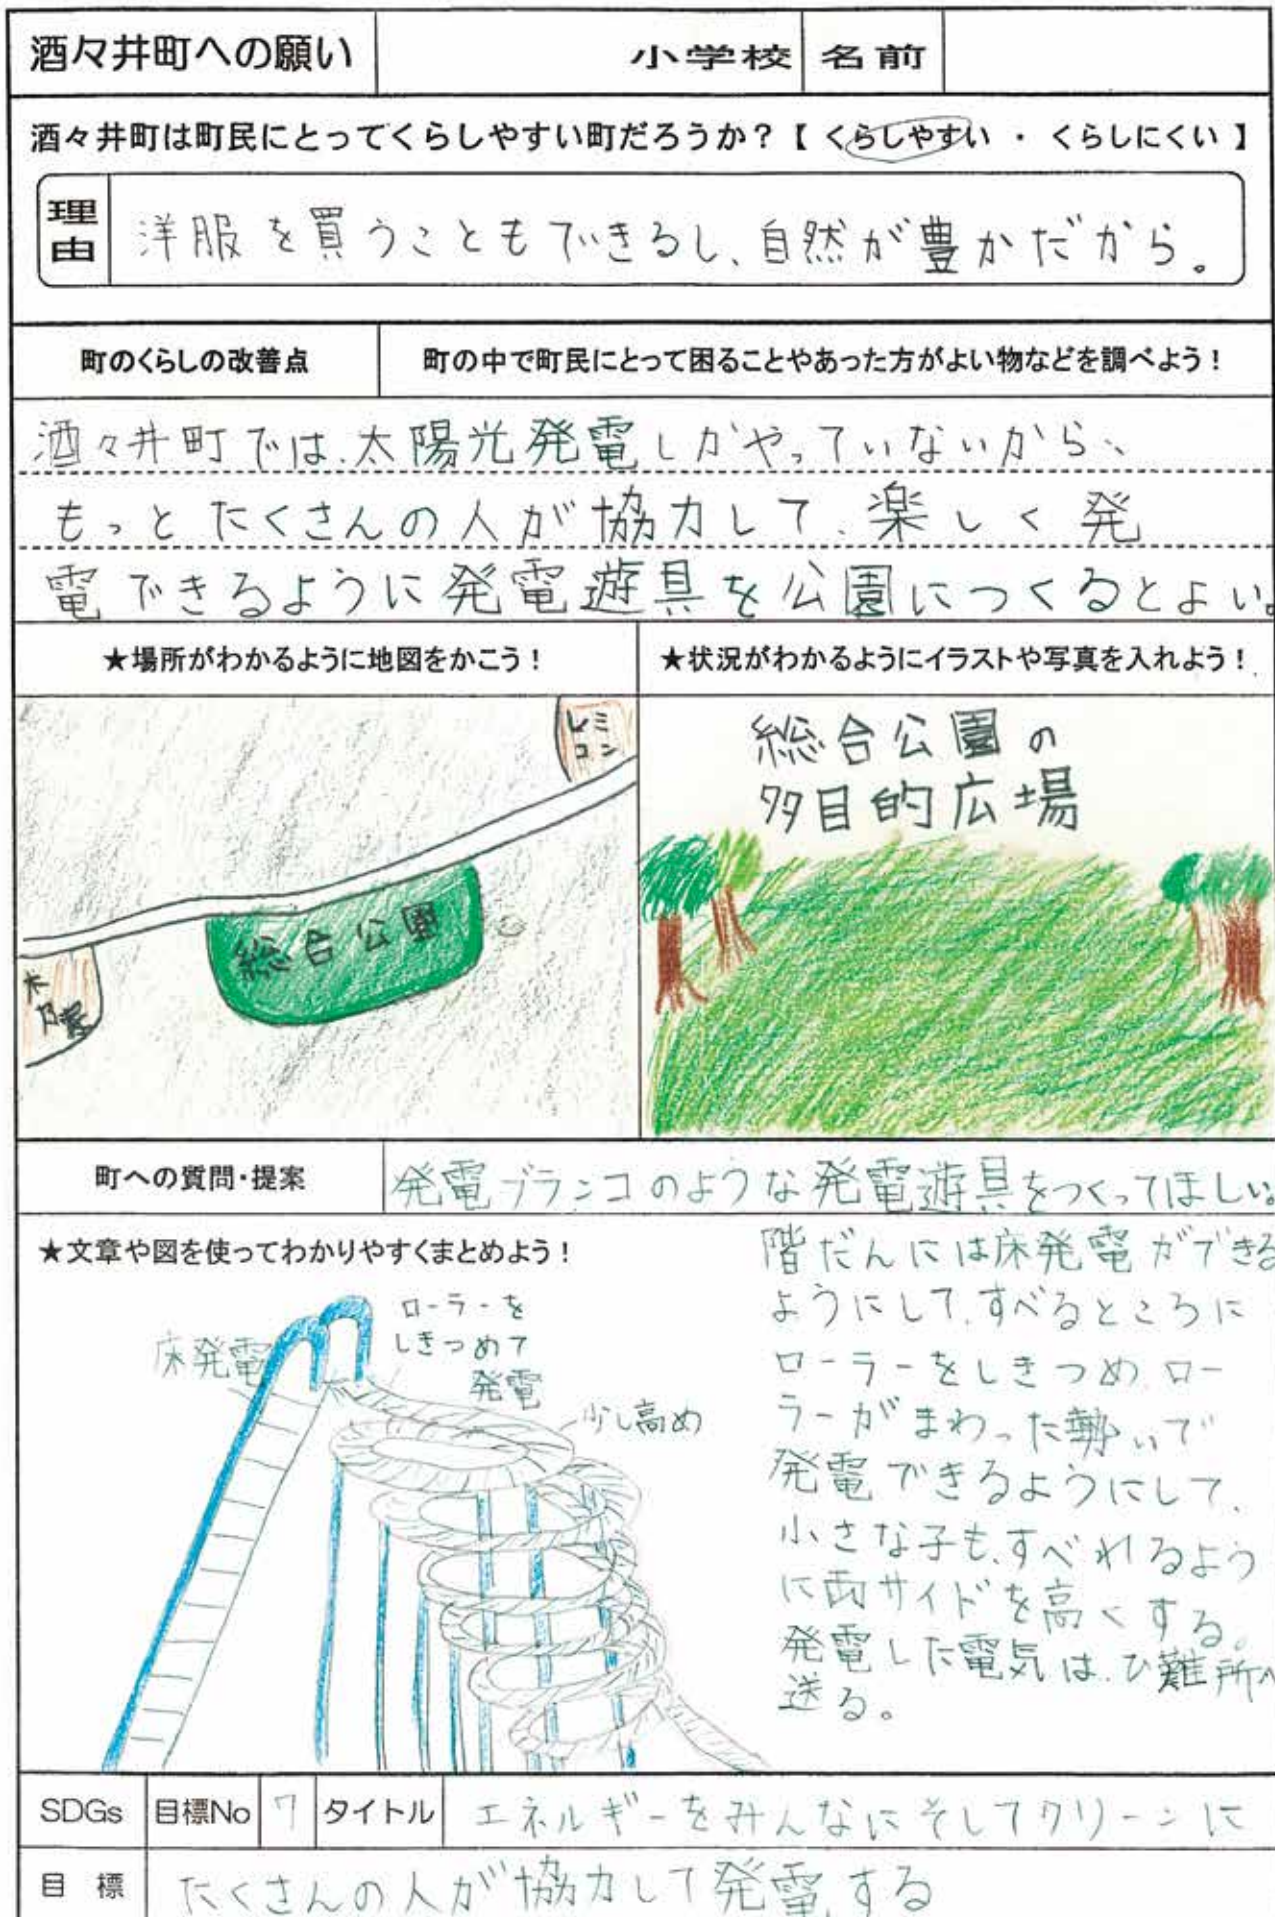 酒々井町への願い 小学校 名前
酒々井町は町民にとってくらしやすい町だろうか？【 くらしやすい ・ くらしにくい 】
理由 洋服を買うこともできるし、自然が豊かだから。
町のくらしの改善点 町の中で町民にとって困ることやあった方がよい物などを調べよう！
酒々井町では、太陽光発電しかやっていないから、
もっとたくさんの人が協力して、楽しく発
電できるように発電遊具を公園につくるとよい。
★場所がわかるように地図をかこう！
総合公園
★状況がわかるようにイラストや写真を入れよう！
総合公園の
多目的広場
町への質問・提案 発電ブランコのような発電遊具をつくってほしい。
★文章や図を使ってわかりやすくまとめよう！
床発電
ローラーを
しきつめて
発電
少し高め
階だんには床発電ができる
ようにして、すべるところに
ローラーをしきつめ、ロー
ラーがまわった勢いで
発電できるようにして、
小さな子も、すべれるよう
に両サイドを高くする。
発電した電気は、ひ難所へ
送る。
SDGs 目標No 7 タイトル エネルギーをみんなにそしてクリーンに
目標 たくさんの人が協力して発電する